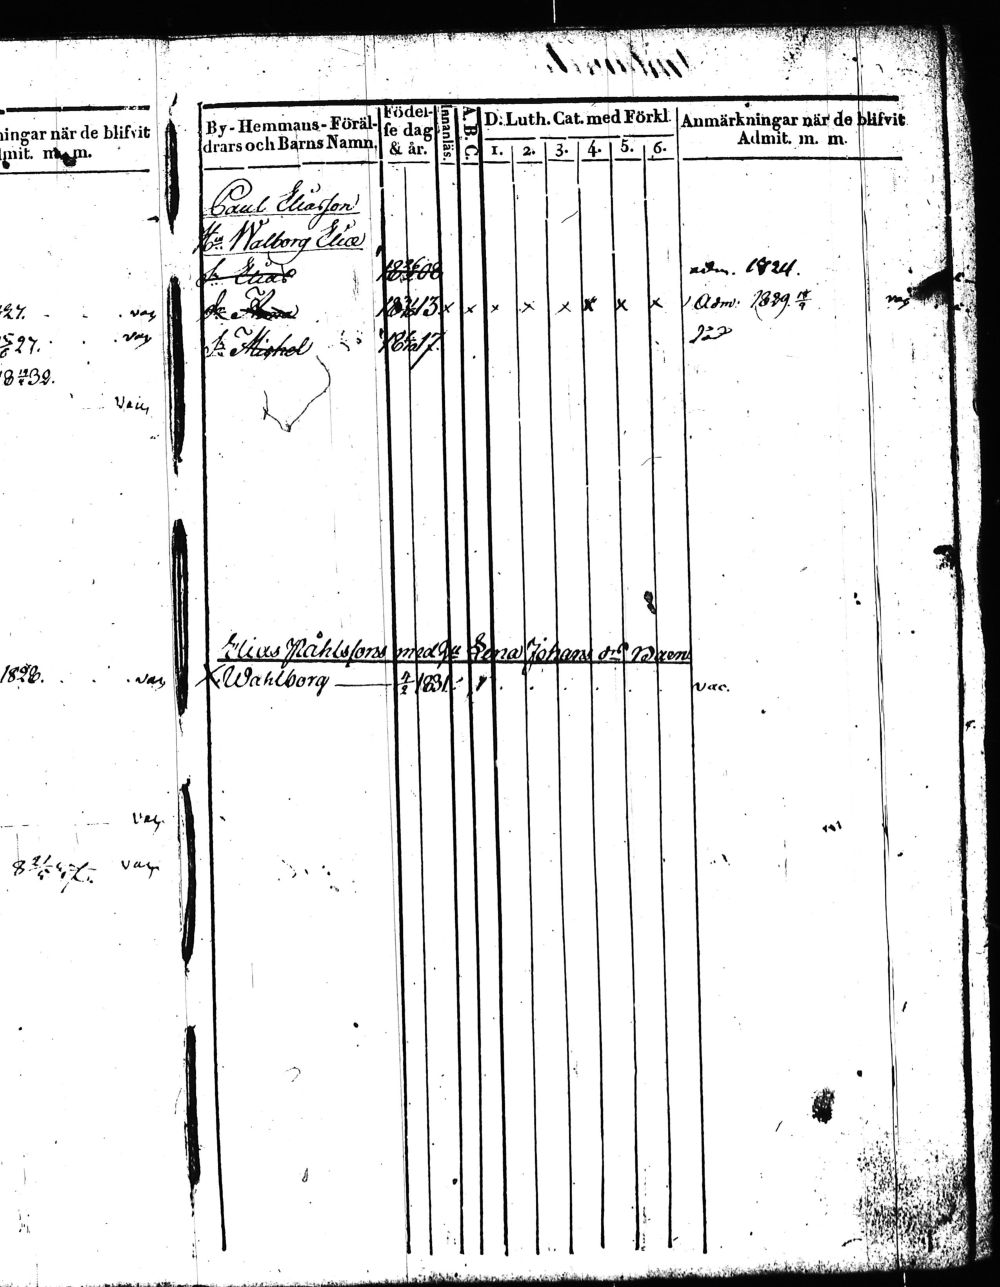 ningar när de blifvit
dmit. m. m.
27. vac
27. vac
1832.
Vac
1828. vac
vac
vac
By-Hemmans-Föräl-
drars och Barns Namn.
Födel-
se dag
& år.
Innanläs.
A. B. C.
D. Luth. Cat. med Förkl.
1. 2. 3. 4. 5. 6.
Anmärkningar när de blifvit
Admit. m. m.
Paul Eliasson
Hu Walborg Eliæ
S. Elias 1808 adm. 1824.
13 x x x x x x x x Adm. 1829 vac
S. Michel 17.
Elias Påhlssons med Hu Lena Johans drs Barn
X Wahlborg 1831. vac.